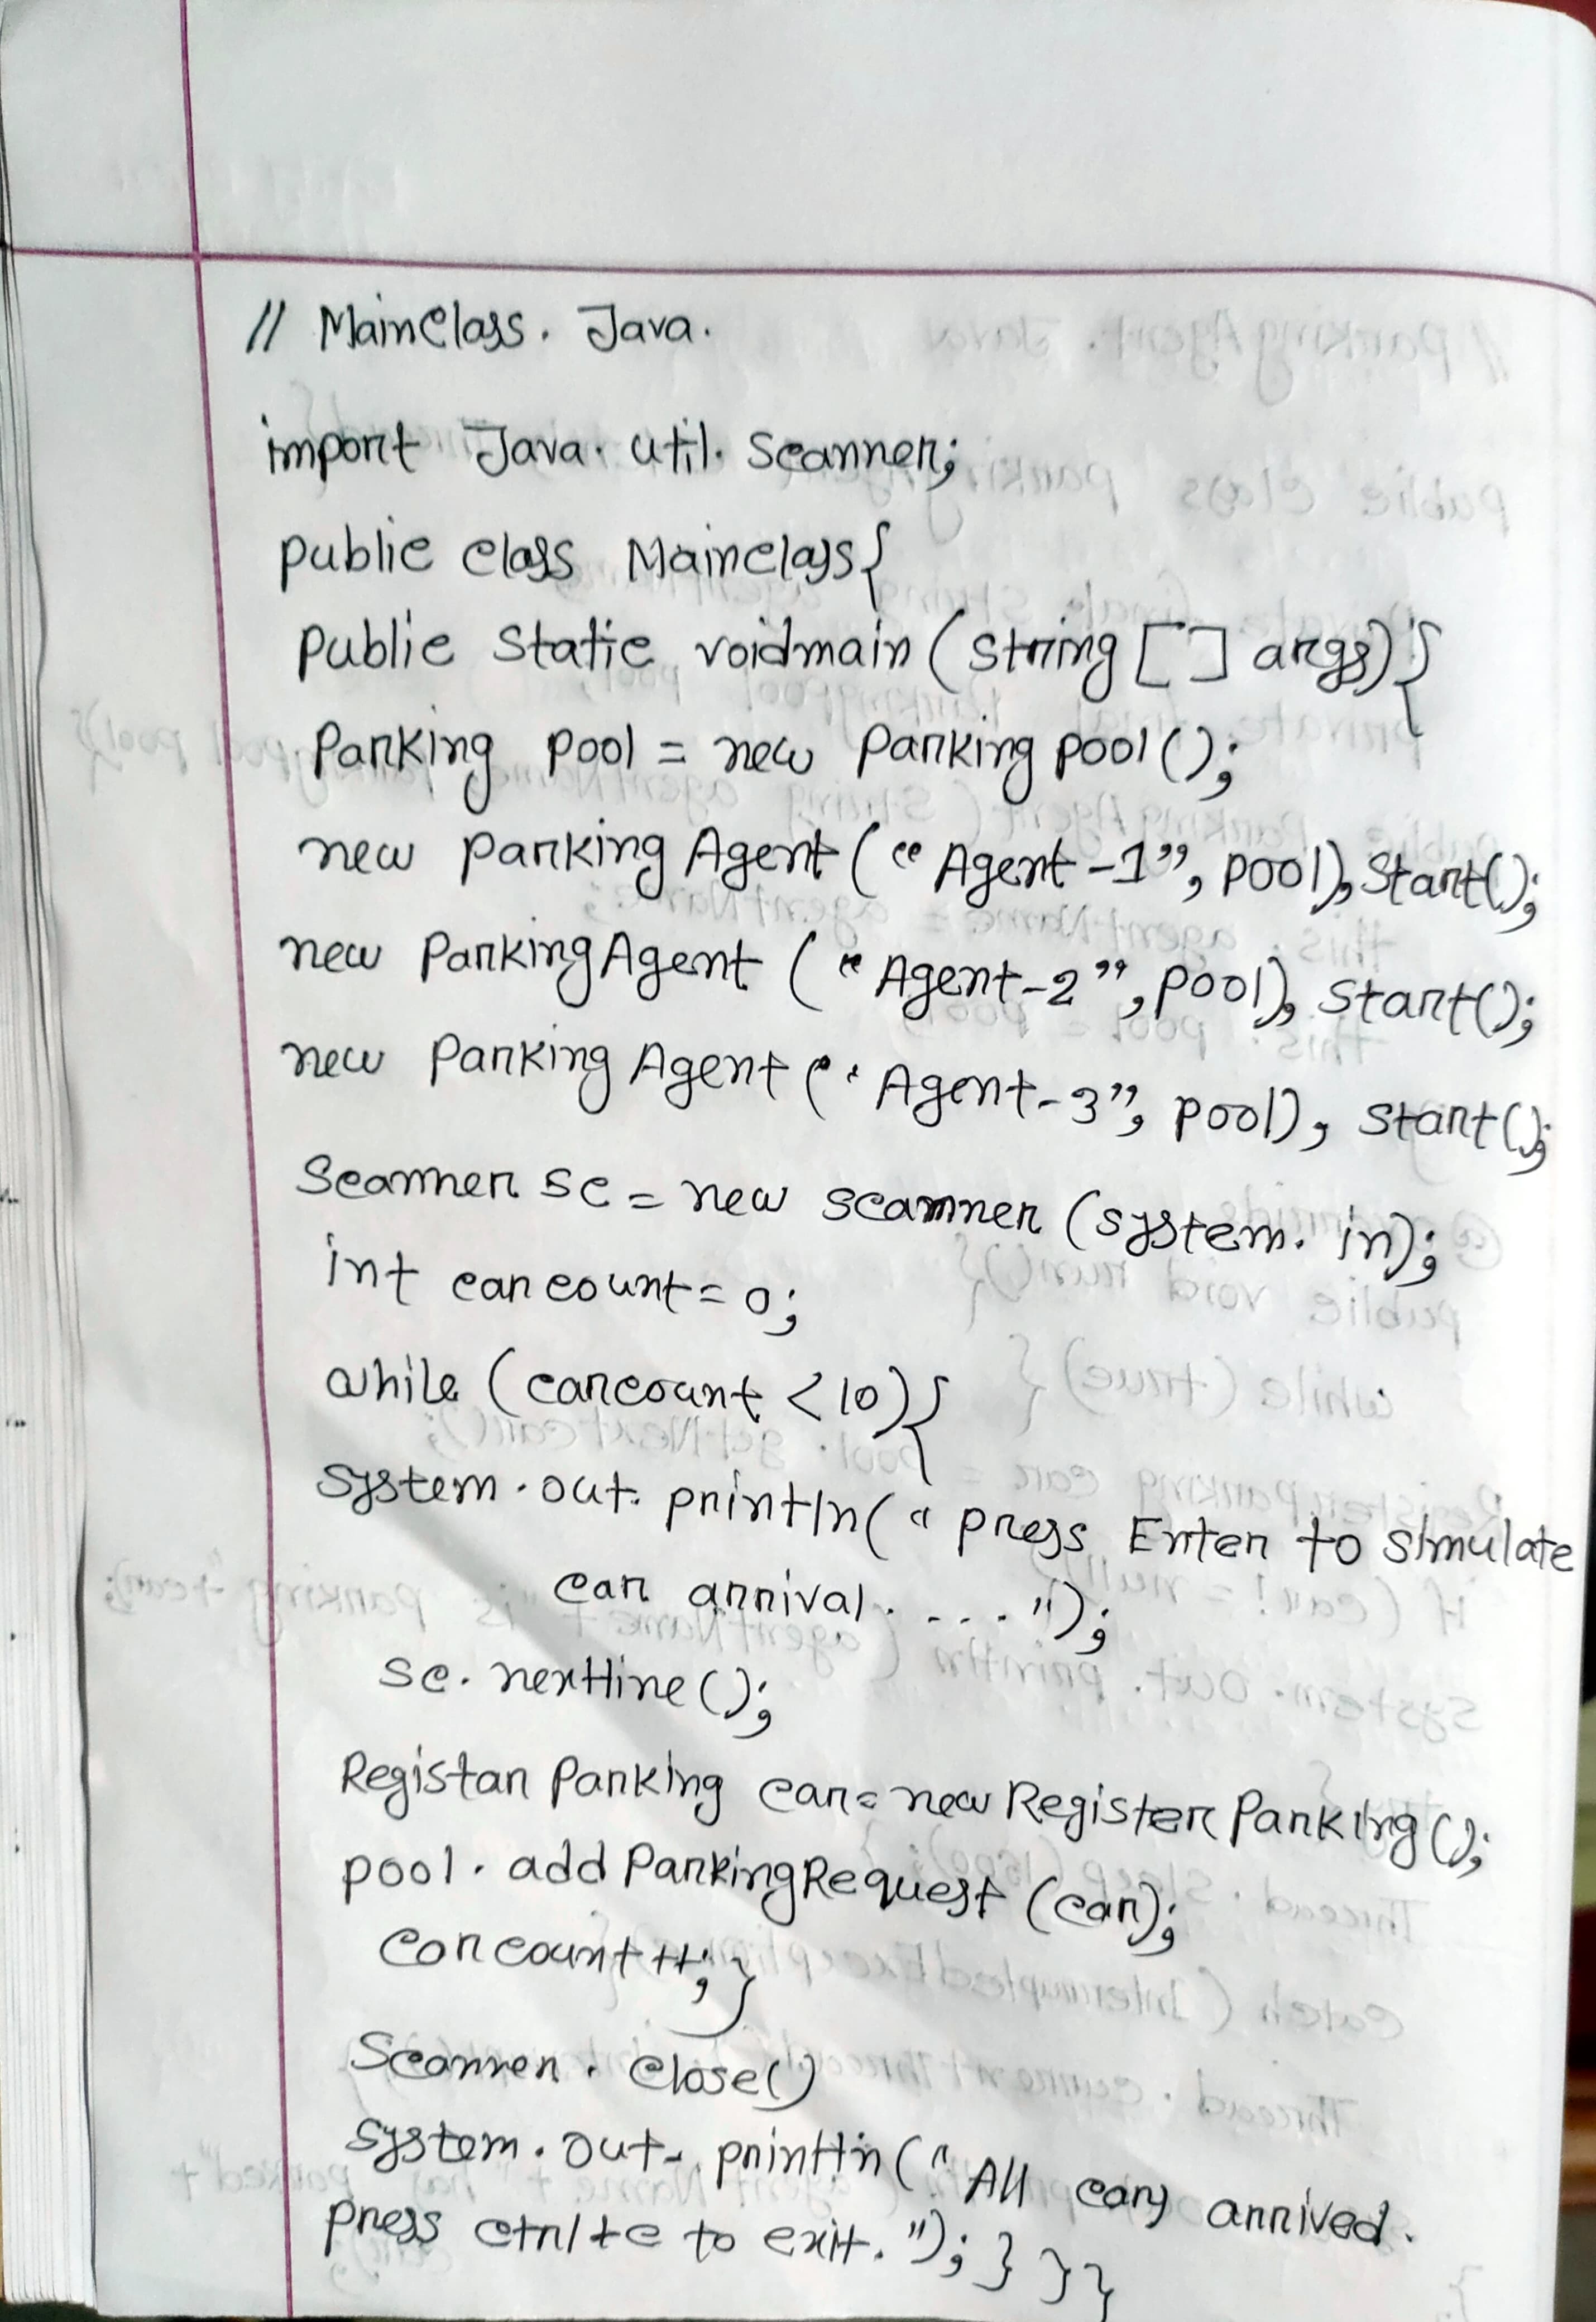 // MainClass. Java.
import Java. util. Scanner;
public class Mainclass{
public static voidmain (string [] args){
Parking pool = new Parking pool ();
new parking Agent ("Agent -1", pool), start();
new Parking Agent ("Agent-2", pool), start();
new Parking Agent ("Agent-3", pool), start();
Scanner sc = new scanner (system. in);
int carcount = 0;
while (carcount < 10){
system. out. println( " press Enter to simulate
car arrival. . . . . ");
sc. nextline ();
Registar Parking car = new Register Parking ();
pool. add ParkingRequest (car);
carcount ++; }
Scanner. close()
system. out. println (" All cars arrived.
press ctrl+c to exit. "); } } }